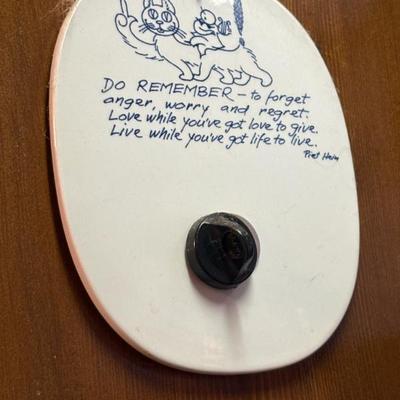 DO REMEMBER - to forget
anger, worry and regret.
Love while you've got love to give.
Live while you've got life to live.
Piet Hein